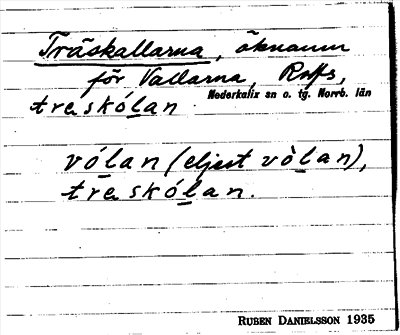 Träskallarna, öknamn
för Vallarna, Rolfs,
Nederkalix sn o. tg. Norrb. län
treskólan
vólan (eljest vòlan),
treskólan.
RUBEN DANIELSSON 1935